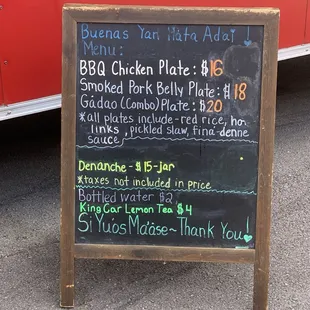 Buenas Yan Hafa Adai!
Menu:
BBQ Chicken Plate: $16
Smoked Pork Belly Plate: $18
Gådao (Combo) Plate: $20
*all plates include-red rice, hot
links, pickled slaw, fina-denne
sauce
Denanche - $15-jar
*taxes not included in price
Bottled water $2
King Car Lemon Tea $4
Si Yu'os Ma'åse ~ Thank You!